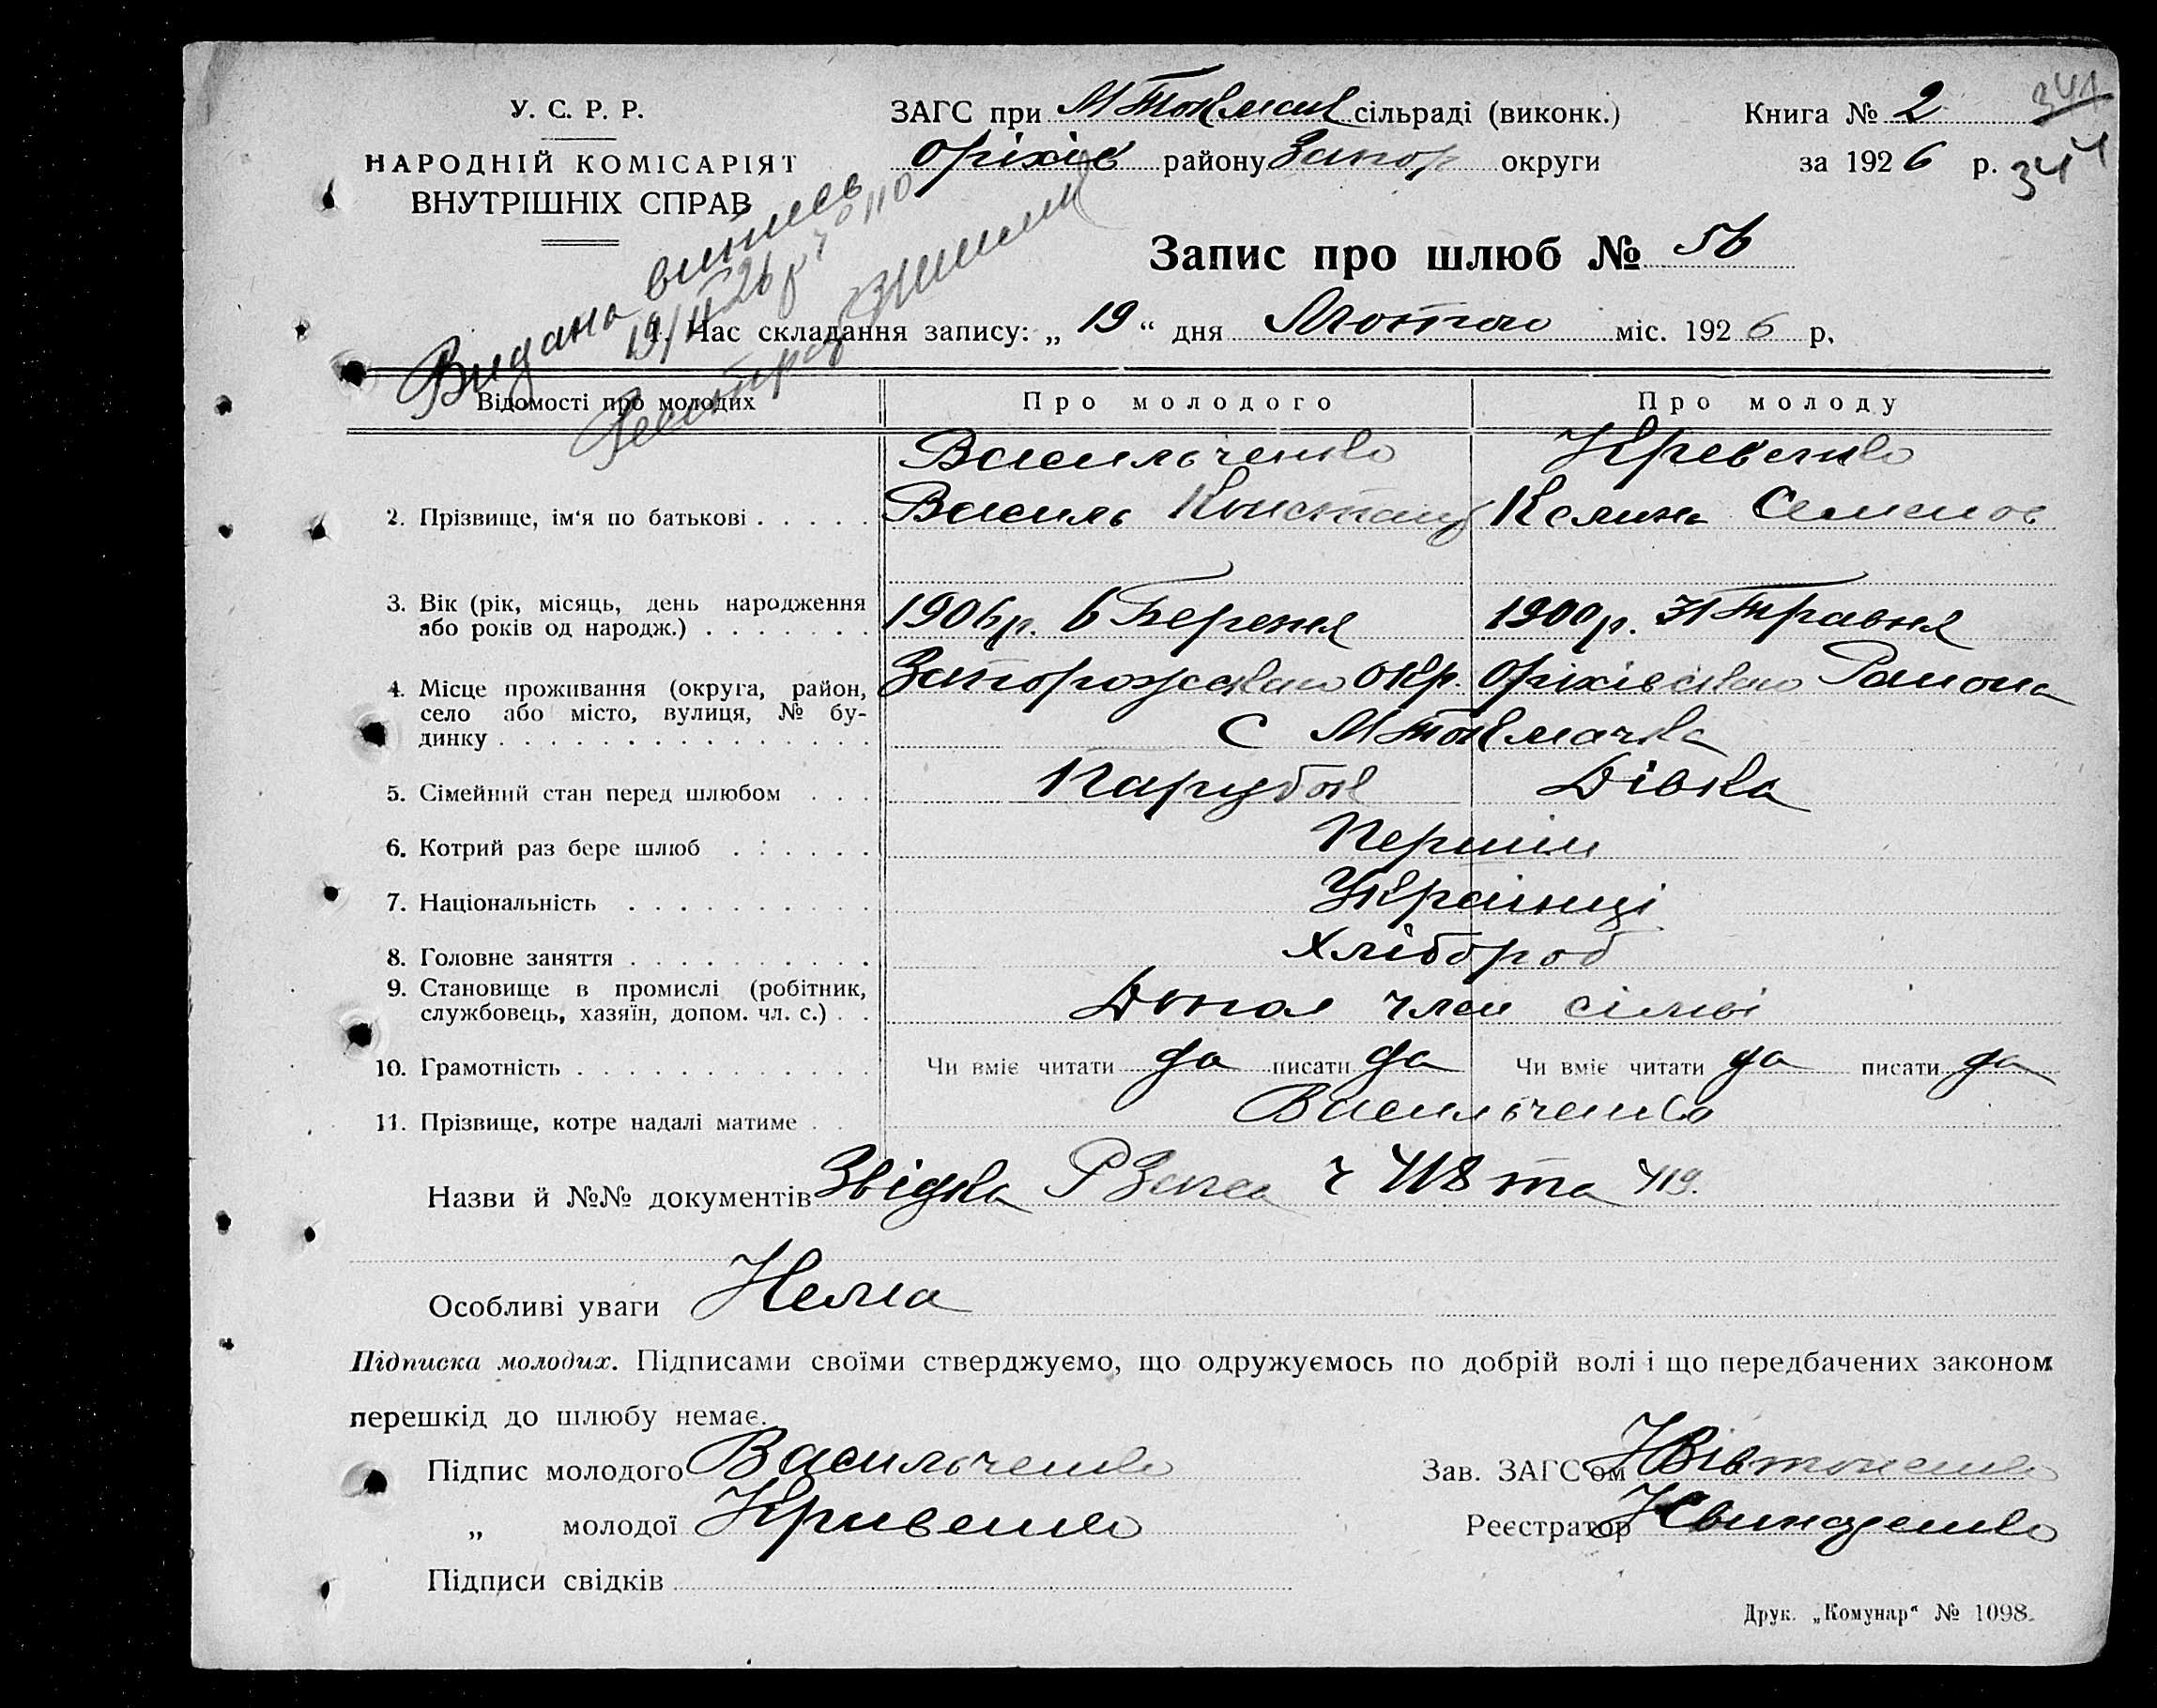 У. С. Р. Р.
НАРОДНІЙ КОМІСАРІЯТ
ВНУТРІШНІХ СПРАВ
ЗАГС при М Токмак сільраді (виконк.)
Оріхів району Запор округи
Книга № 2
за 1926 р.
341
344
Видано випись
19/II 26 р № 110
Запис про шлюб № 56
1. Час складання запису: „ 19 “ дня Лютого міс. 1926 р.
Відомості про молодих Про молодого Про молоду
Васильченко Кревенко
2. Прізвище, ім‘я по батькові . . . . . Василь Констант Келина Семенов
3. Вік (рік, місяць, день народження
або років од народж.) . . . . . . . 1906р. 6 Березня 1900р. 31 Травня
4. Місце проживання (округа, район, Запорожсько окр. Оріхівсько Району
село або місто, вулиця, № бу- С М Токмачка
динку . . . . . . . . . . . . . . .
5. Сімейний стан перед шлюбом . . . Парубок Дівка
6. Котрий раз бере шлюб . . . . . . Перший
7. Національність . . . . . . . . . . Українці
8. Головне заняття . . . . . . . . . . Хлібороб
9. Становище в промислі (робітник,
службовець, хазяїн, допом. чл. с.) . . Допом член сімьї
10. Грамотність . . . . . . . . . . . . Чи вміє читати да писати да Чи вміє читати да писати да
11. Прізвище, котре надалі матиме . . Васильченко
Назви й №№ документів Звідка Р Загса ч 418 та 419.
Особливі уваги Нема
Підписка молодих. Підписами своїми стверджуємо, що одружуємось по добрій волі і що передбачених законом
перешкід до шлюбу немає.
Підпис молодого Васильченко Зав. ЗАГС‘ом
„ молодої Кривенко Реєстратор
Підписи свідків
Друк. „Комунар“ № 1098.